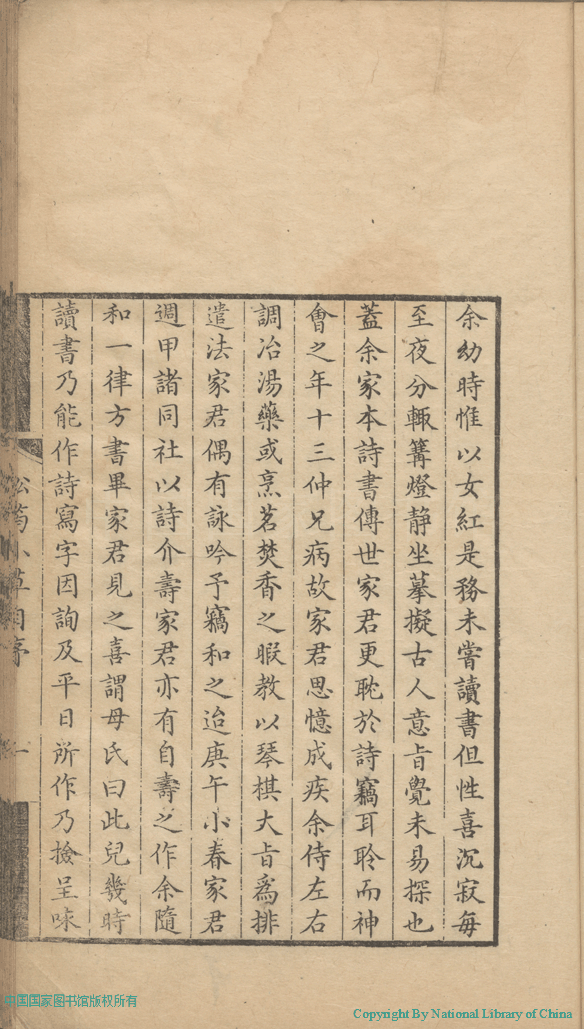 余幼時惟以女紅是務未嘗讀書但性喜沉寂每
至夜分輙篝燈静坐摹擬古人意旨覺未易探也
蓋余家本詩書傳世家君更耽於詩竊耳聆而神
會之年十三仲兄病故家君思憶成疾余侍左右
調冶湯藥或烹茗焚香之暇教以琴棋大旨爲排
遣法家君偶有詠吟予竊和之迨庚午小春家君
週甲諸同社以詩介壽家君亦有自壽之作余隨
和一律方書畢家君見之喜謂母氏曰此兒幾時
讀書乃能作詩寫字因詢及平日所作乃撿呈味
松筠小草自序
一
中国国家图书馆版权所有
Copyright By National Library of China